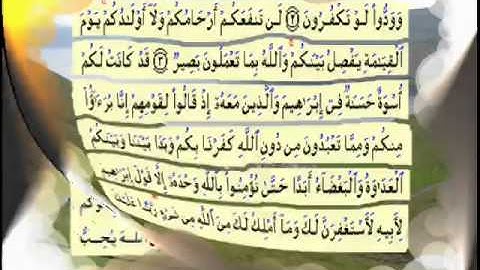 وَوَدُّوا۟ لَوْ تَكْفُرُونَ ٢ لَن تَنفَعَكُمْ أَرْحَامُكُمْ وَلَآ أَوْلَٰدُكُمْ يَوْمَ
ٱلْقِيَٰمَةِ يَفْصِلُ بَيْنَكُمْ وَٱللَّهُ بِمَا تَعْمَلُونَ بَصِيرٌ ٣ قَدْ كَانَتْ لَكُمْ
أُسْوَةٌ حَسَنَةٌ فِىٓ إِبْرَٰهِيمَ وَٱلَّذِينَ مَعَهُۥٓ إِذْ قَالُوا۟ لِقَوْمِهِمْ إِنَّا بُرَءَٰٓؤُا۟
مِنكُمْ وَمِمَّا تَعْبُدُونَ مِن دُونِ ٱللَّهِ كَفَرْنَا بِكُمْ وَبَدَا بَيْنَنَا وَبَيْنَكُمُ
ٱلْعَدَٰوَةُ وَٱلْبَغْضَآءُ أَبَدًا حَتَّىٰ تُؤْمِنُوا۟ بِٱللَّهِ وَحْدَهُۥٓ إِلَّا قَوْلَ إِبْرَٰهِيمَ
لِأَبِيهِ لَأَسْتَغْفِرَنَّ لَكَ وَمَآ أَمْلِكُ لَكَ مِنَ ٱللَّهِ مِن شَىْءٍ